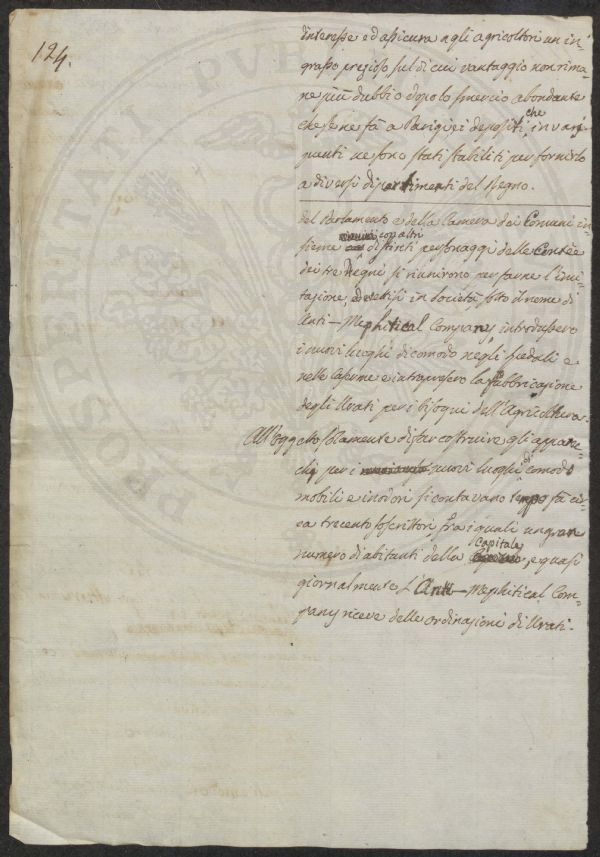 124.
interesse ed assicura agli agricoltori un in-
grasso prezioso sul di cui vantaggio non rima-
ne più dubbio dopo lo smercio abondante
che se ne fà a Parigi, ei depositi, che in varj
punti ne sono stati stabiliti per fornirlo
a diversi dipartimenti del Regno.
del Parlamento e della Camera dei Comuni in-
sieme con altri distinti personaggi delle Contèe
dei tre Regni si riunirono per farne l'imi-
tazione, ed eretisi in società, sotto il nome di
Anti-Mephitical Company introdussero
i nuovi luoghi di comodo negli spedali e
nelle caserme e intrapresero la fabbricazione
degli Urati per i bisogni dell'Agricoltura.
All'oggetto solamente di far costruire gli apparec-
chj per i nuovi luoghi di comodo
mobili e inodori si contavano tempo fà cir-
ca trecento soscrittori, fra i quali un gran
numero di abitanti della Capitale, e quasi
giornalmente l'Anti-Mephitical Com-
pany riceve delle ordinazioni di Urati.
PROSPERITATI PUBL